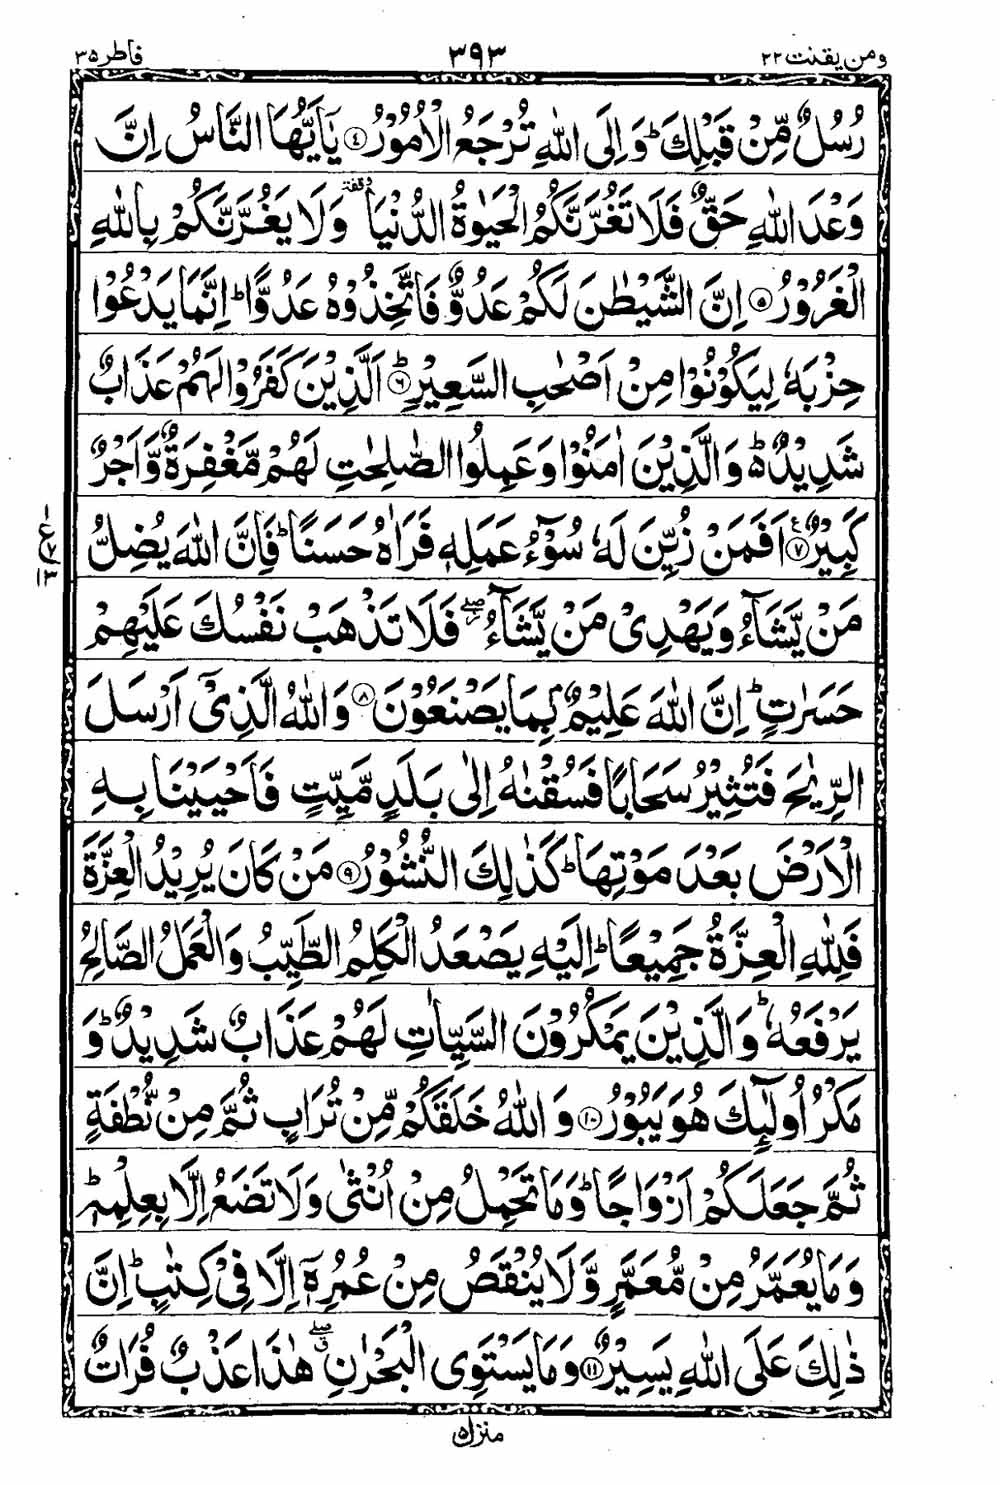 ومن يقنت ٢٢ ٣٩٣ فاطر ٣٥
رُسُلٌ مِّنْ قَبْلِكَ ؕ وَاِلَى اللّٰهِ تُرْجَعُ الْاُمُوْرُ ﴿۴﴾ يٰۤاَيُّهَا النَّاسُ اِنَّ
وَعْدَ اللّٰهِ حَقٌّ فَلَا تَغُرَّنَّكُمُ الْحَيٰوةُ الدُّنْيَا ۥ وقفة وَلَا يَغُرَّنَّكُمْ بِاللّٰهِ
الْغَرُوْرُ ﴿۵﴾ اِنَّ الشَّيْطٰنَ لَكُمْ عَدُوٌّ فَاتَّخِذُوْهُ عَدُوًّا ؕ اِنَّمَا يَدْعُوْا
حِزْبَهٗ لِيَكُوْنُوْا مِنْ اَصْحٰبِ السَّعِيْرِ ؕ﴿۶﴾ اَلَّذِيْنَ كَفَرُوْا لَهُمْ عَذَابٌ
شَدِيْدٌ ؕ۬ وَالَّذِيْنَ اٰمَنُوْا وَعَمِلُوا الصّٰلِحٰتِ لَهُمْ مَّغْفِرَةٌ وَّاَجْرٌ
كَبِيْرٌ ﴿۷﴾ع اَفَمَنْ زُيِّنَ لَهٗ سُوْٓءُ عَمَلِهٖ فَرَاٰهُ حَسَنًا ؕ فَاِنَّ اللّٰهَ يُضِلُّ
مَنْ يَّشَآءُ وَيَهْدِىْ مَنْ يَّشَآءُ ۖ فَلَا تَذْهَبْ نَفْسُكَ عَلَيْهِمْ
حَسَرٰتٍ ؕ اِنَّ اللّٰهَ عَلِيْمٌۢ بِمَا يَصْنَعُوْنَ ﴿۸﴾ وَاللّٰهُ الَّذِىْۤ اَرْسَلَ
الرِّيٰحَ فَتُثِيْرُ سَحَابًا فَسُقْنٰهُ اِلٰى بَلَدٍ مَّيِّتٍ فَاَحْيَيْنَا بِهِ
الْاَرْضَ بَعْدَ مَوْتِهَا ؕ كَذٰلِكَ النُّشُوْرُ ﴿۹﴾ مَنْ كَانَ يُرِيْدُ الْعِزَّةَ
فَلِلّٰهِ الْعِزَّةُ جَمِيْعًا ؕ اِلَيْهِ يَصْعَدُ الْكَلِمُ الطَّيِّبُ وَالْعَمَلُ الصَّالِحُ
يَرْفَعُهٗ ؕ وَالَّذِيْنَ يَمْكُرُوْنَ السَّيِّاٰتِ لَهُمْ عَذَابٌ شَدِيْدٌ ؕ وَ
مَكْرُ اُولٰٓئِكَ هُوَ يَبُوْرُ ﴿۱۰﴾ وَاللّٰهُ خَلَقَكُمْ مِّنْ تُرَابٍ ثُمَّ مِنْ نُّطْفَةٍ
ثُمَّ جَعَلَكُمْ اَزْوَاجًا ؕ وَمَا تَحْمِلُ مِنْ اُنْثٰى وَلَا تَضَعُ اِلَّا بِعِلْمِهٖ ؕ
وَمَا يُعَمَّرُ مِنْ مُّعَمَّرٍ وَّلَا يُنْقَصُ مِنْ عُمُرِهٖۤ اِلَّا فِىْ كِتٰبٍ ؕ اِنَّ
ذٰلِكَ عَلَى اللّٰهِ يَسِيْرٌ ﴿۱۱﴾ وَمَا يَسْتَوِى الْبَحْرٰنِ ۖ هٰذَا عَذْبٌ فُرَاتٌ
منزل ٥